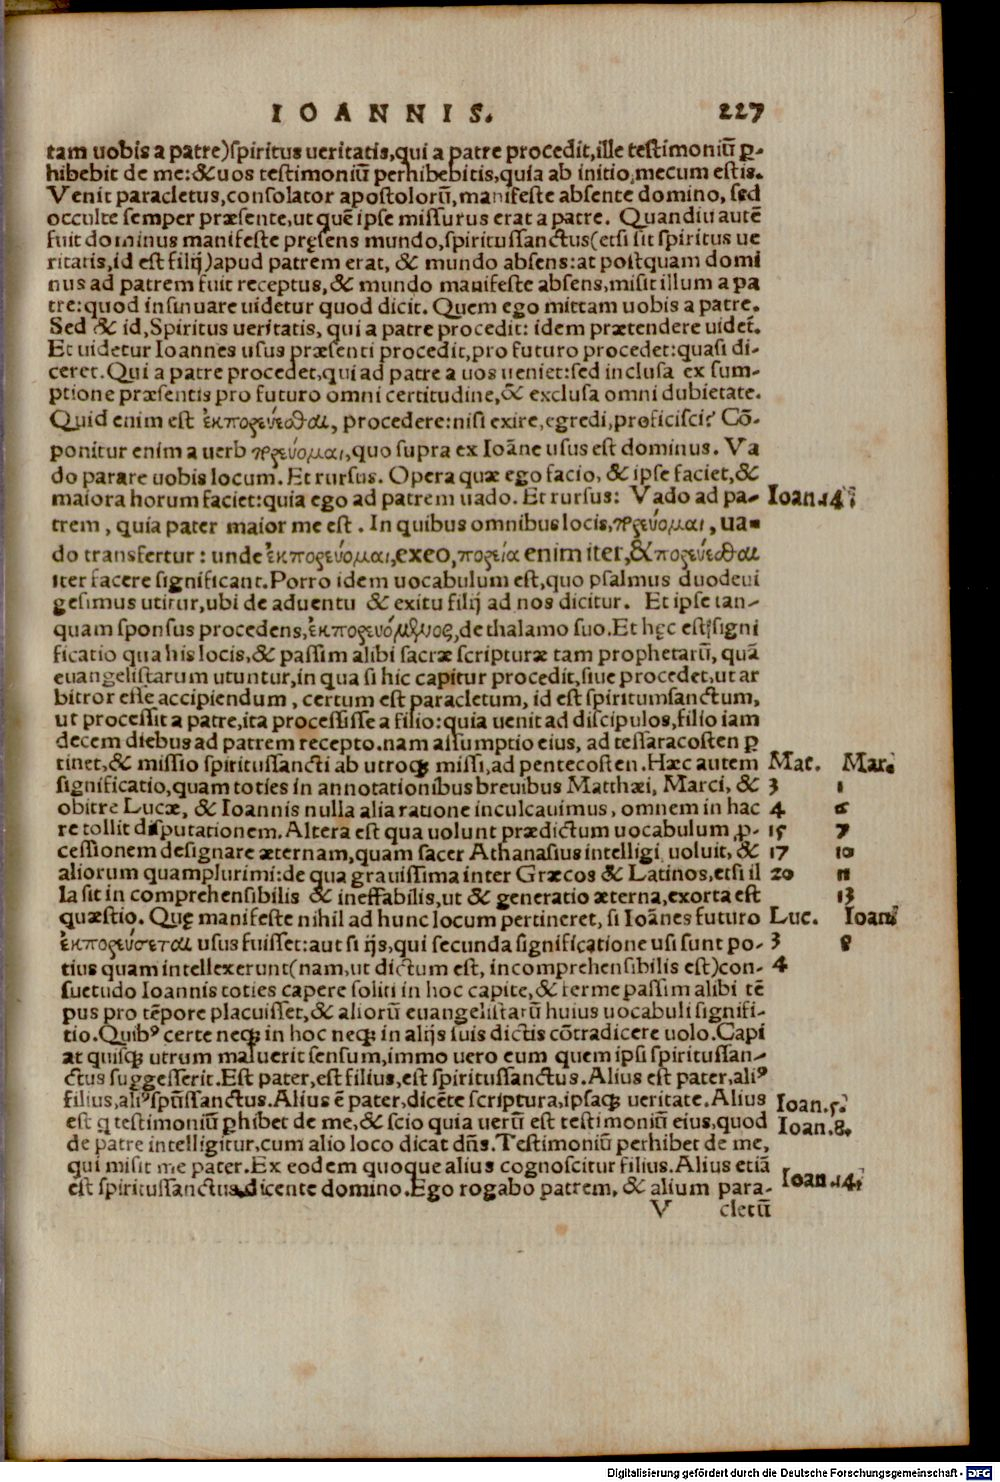 IOANNIS. 227
tam uobis a patre)spiritus ueritatis,qui a patre procedit,ille testimoniū ꝑ-
hibebit de me:&uos testimonium perhibebitis,quia ab initio mecum estis.
Venit paracletus,consolator apostolorū,manifeste absente domino, sed
occulte semper præsente,ut quē ipse missurus erat a patre. Quandiu autē
fuit dominus manifeste pręsens mundo,spiritussanctus(etsi sit spiritus ue
ritatis,id est filij)apud patrem erat, & mundo absens:at postquam domi
nus ad patrem fuit receptus,& mundo manifeste absens,misit illum a pa
tre:quod insinuare uidetur quod dicit. Quem ego mittam uobis a patre.
Sed & id,Spiritus ueritatis, qui a patre procedit: idem prætendere uidet̃.
Et uidetur Ioannes usus præsenti procedit,pro futuro procedet:quasi di-
ceret.Qui a patre procedet,qui ad patre a uos ueniet:sed inclusa ex sum-
ptione præsentis pro futuro omni certitudine,& exclusa omni dubietate.
Quid enim est ἐκπορεύεσθαι, procedere:nisi exire,egredi,proficisci? Cō-
ponitur enim a uerb πορεύομαι,quo supra ex Ioāne usus est dominus. Va
do parare uobis locum. Et rursus. Opera quæ ego facio, & ipse faciet,&
maiora horum faciet:quia ego ad patrem uado. Et rursus: Vado ad pa- Ioan.14.
trem, quia pater maior me est. In quibus omnibus locis,πορεύομαι, ua-
do transfertur: unde ἐκπορεύομαι,exeo,πορεία enim iter,&πορεύεσθαι
iter facere significant.Porro idem uocabulum est,quo psalmus duodeui
gesimus utitur,ubi de aduentu & exitu filij ad nos dicitur. Et ipse tan-
quam sponsus procedens,ἐκπορευόμενος,de thalamo suo.Et hęc est signi
ficatio qua his locis,& passim alibi sacræ scripturæ tam prophetarū, quā
euangelistarum utuntur,in qua si hic capitur procedit,siue procedet,ut ar
bitror esse accipiendum, certum est paracletum, id est spiritumsanctum,
ut processit a patre,ita processisse a filio:quia uenit ad discipulos,filio iam
decem diebus ad patrem recepto.nam assumptio eius, ad tessaracosten ꝑ
tinet,& missio spiritussancti ab utroq; missi,ad pentecosten.Hæc autem Mat. Mar.
significatio,quam toties in annotationibus breuibus Matthæi, Marci, & 3 1
obitre Lucæ, & Ioannis nulla alia ratione inculcauimus, omnem in hac 4 6
re tollit disputationem.Altera est qua uolunt prædictum uocabulum ꝓ- 15 7
cessionem designare æternam,quam sacer Athanasius intelligi uoluit, & 17 10
aliorum quamplurimi:de qua grauissima inter Græcos & Latinos,etsi il 20 11
la sit incomprehensibilis & ineffabilis,ut & generatio æterna,exorta est 13
quæstio. Quę manifeste nihil ad hunc locum pertineret, si Ioānes futuro Luc. Ioan.
ἐκπορεύσεται usus fuisset:aut si ijs,qui secunda significatione usi sunt po- 3 8
tius quam intellexerunt(nam,ut dictum est, incomprehensibilis est)con- 4
suetudo Ioannis toties capere soliti in hoc capite,& ferme passim alibi tē
pus pro tēpore placuisset,& aliorū euangelistarū huius uocabuli signifi-
tio.Quibꝰ certe neq; in hoc neq; in alijs suis dictis cōtradicere uolo.Capi
at quisq; utrum maluerit sensum,immo uero eum quem ipsi spiritussan-
ctus suggesserit.Est pater,est filius,est spiritussanctus.Alius est pater,aliꝰ
filius,aliꝰ spūssanctus.Alius ē pater,dicēte scriptura,ipsaq; ueritate.Alius
est q testimoniū ꝑhibet de me,& scio quia uerū est testimoniū eius,quod Ioan.5.
de patre intelligitur,cum alio loco dicat dñs.Testimoniū perhibet de me, Ioan.8.
qui misit me pater.Ex eodem quoque alius cognoscitur filius.Alius etiā
est spiritussanctus,dicente domino.Ego rogabo patrem, & alium para- Ioan.14.
V cletū
Digitalisierung gefördert durch die Deutsche Forschungsgemeinschaft - DFG